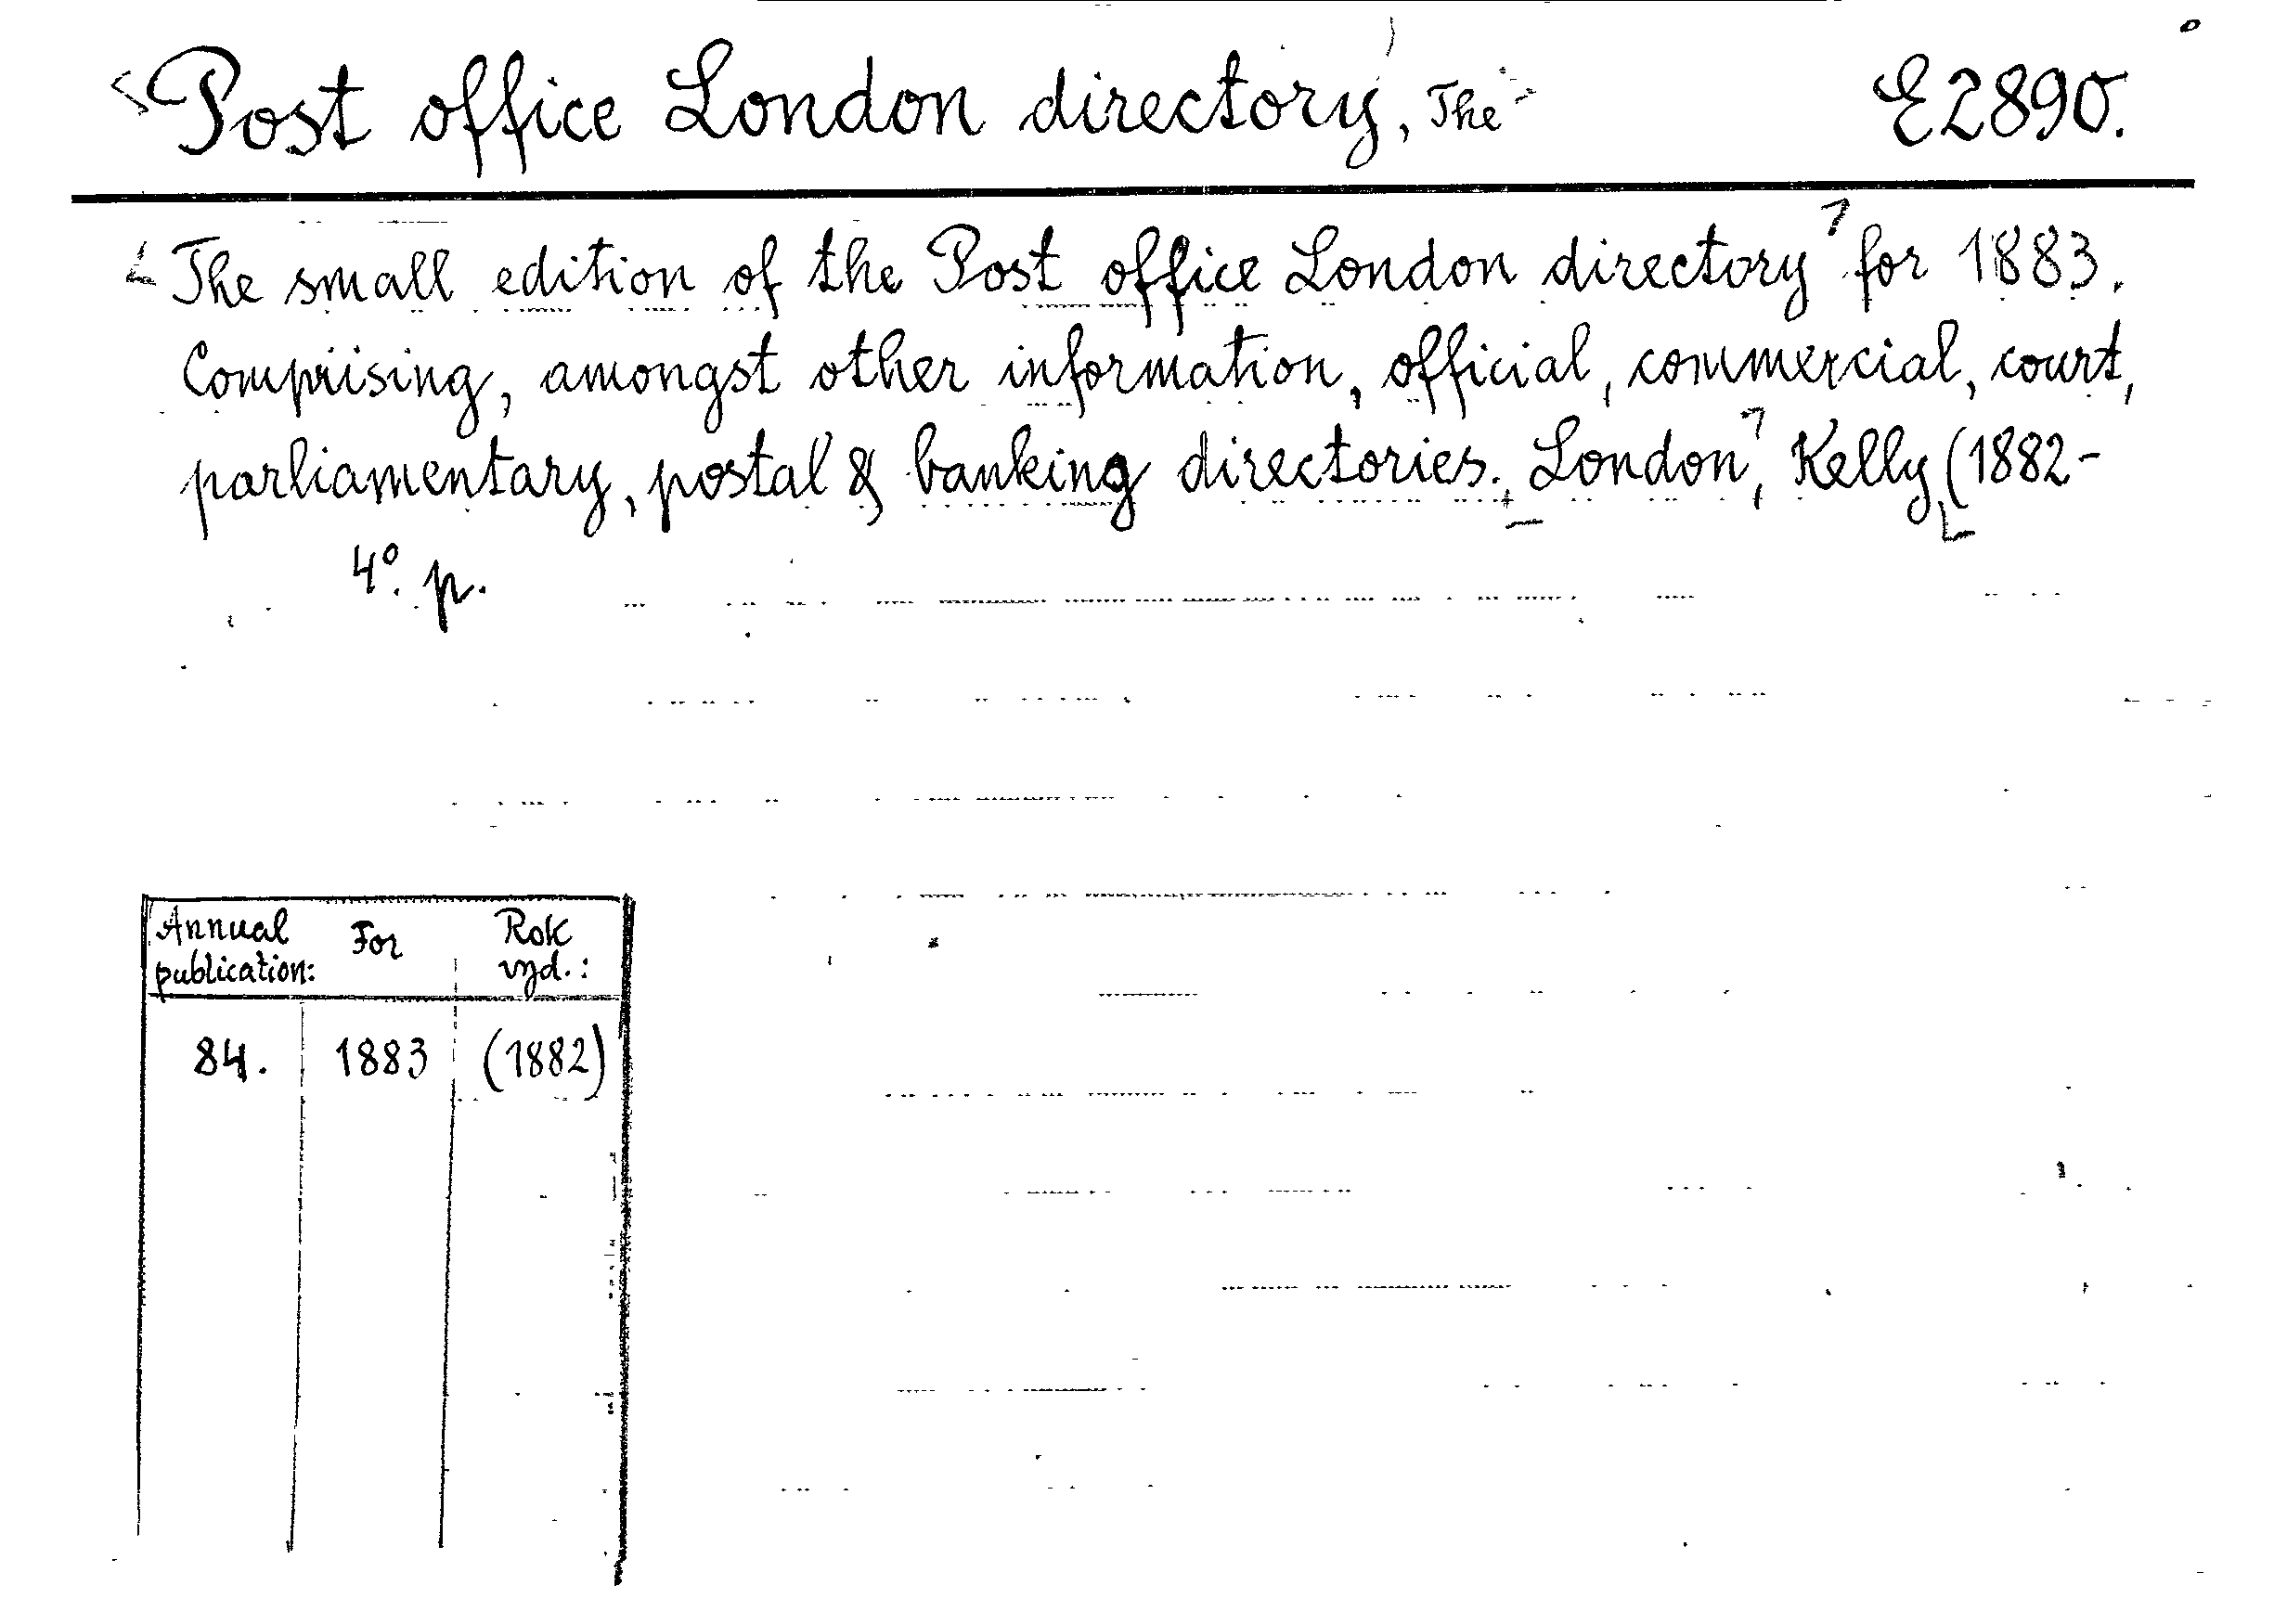 Post office London directory, The E2890.
The small edition of the Post office London directory for 1883.
Comprising, amongst other information, official, commercial, court,
parliamentary, postal & banking directories. London, Kelly (1882-
4°. p.
Annual publication: For Rok vyd.:
84. 1883 (1882)